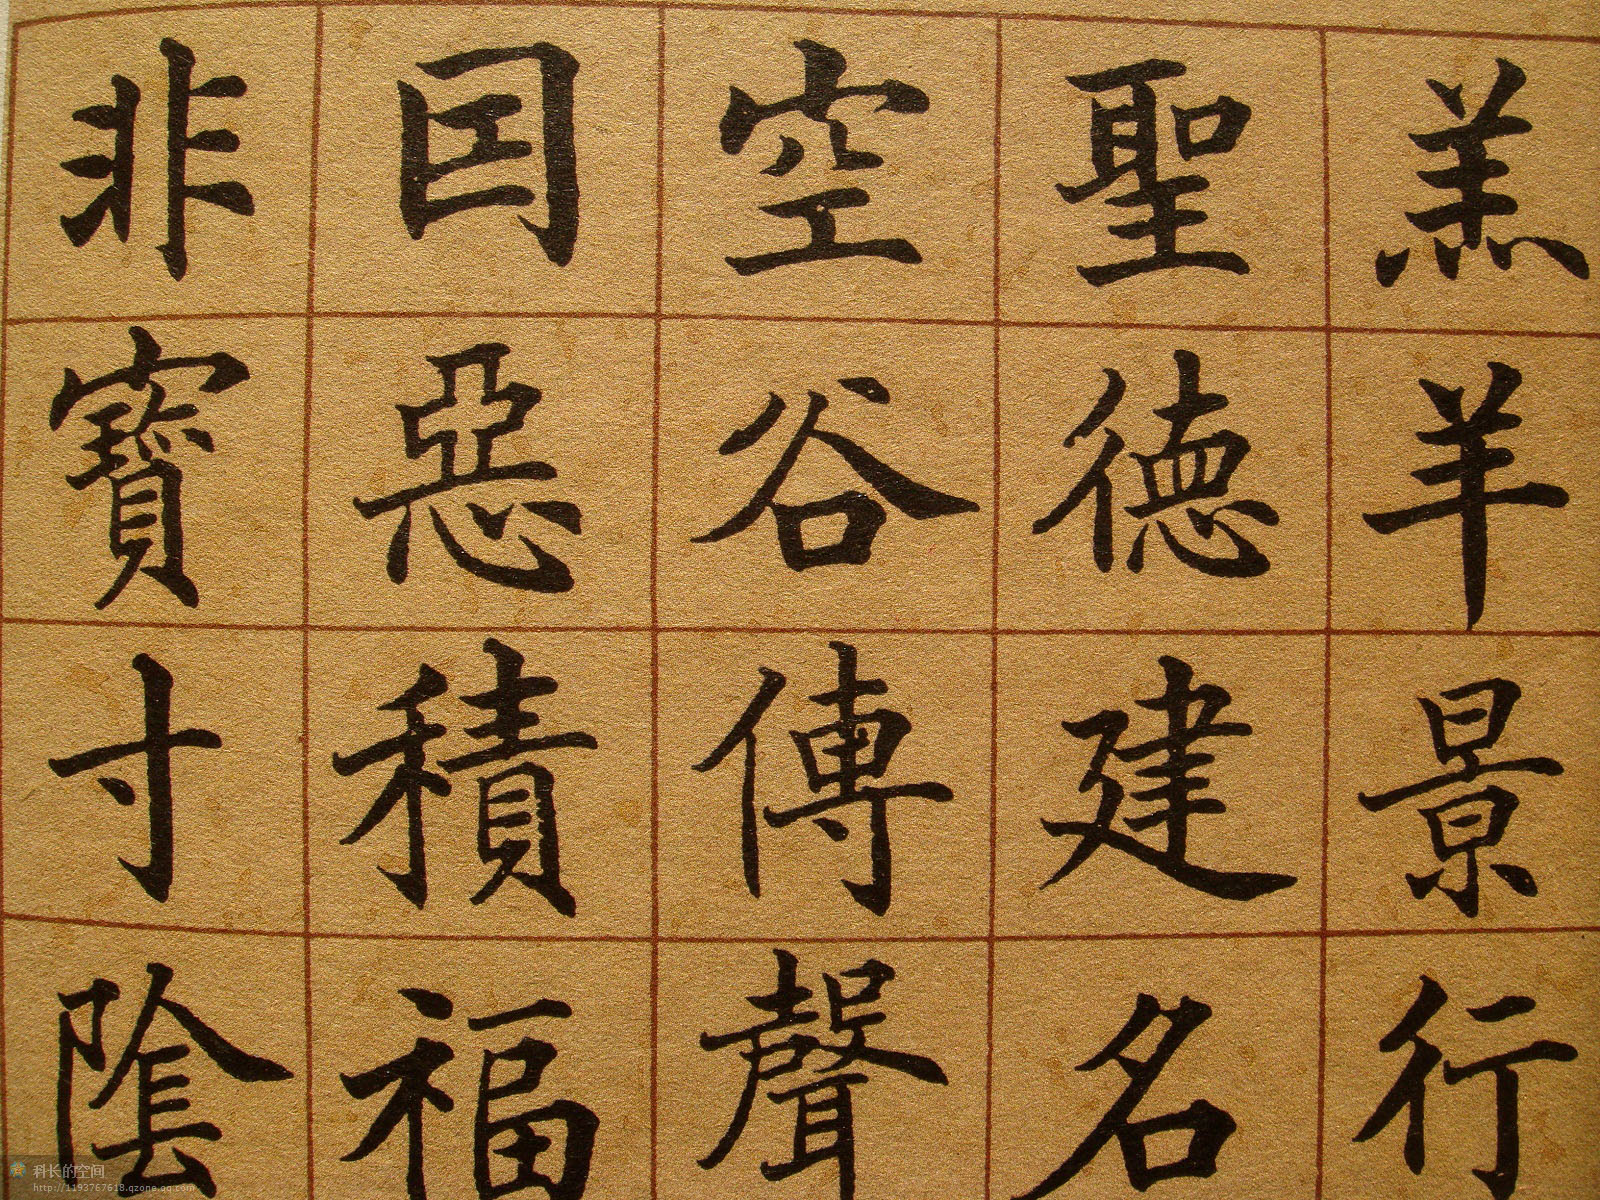 羔羊景行
聖德建名
空谷傳聲
因惡積福
非寶寸陰
科长的空间
http://1193767618.qzone.qq.com